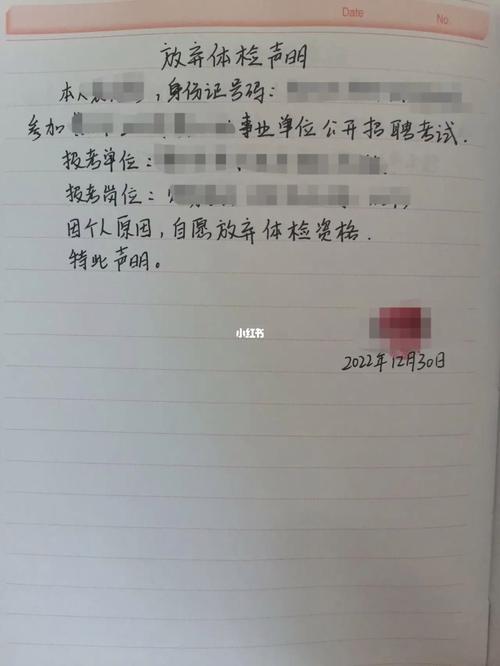 Date
No.
放弃体检声明
本人，身份证号码：
参加事业单位公开招聘考试.
报考单位：
报考岗位：
因个人原因，自愿放弃体检资格.
特此声明。
小红书
2022年12月30日